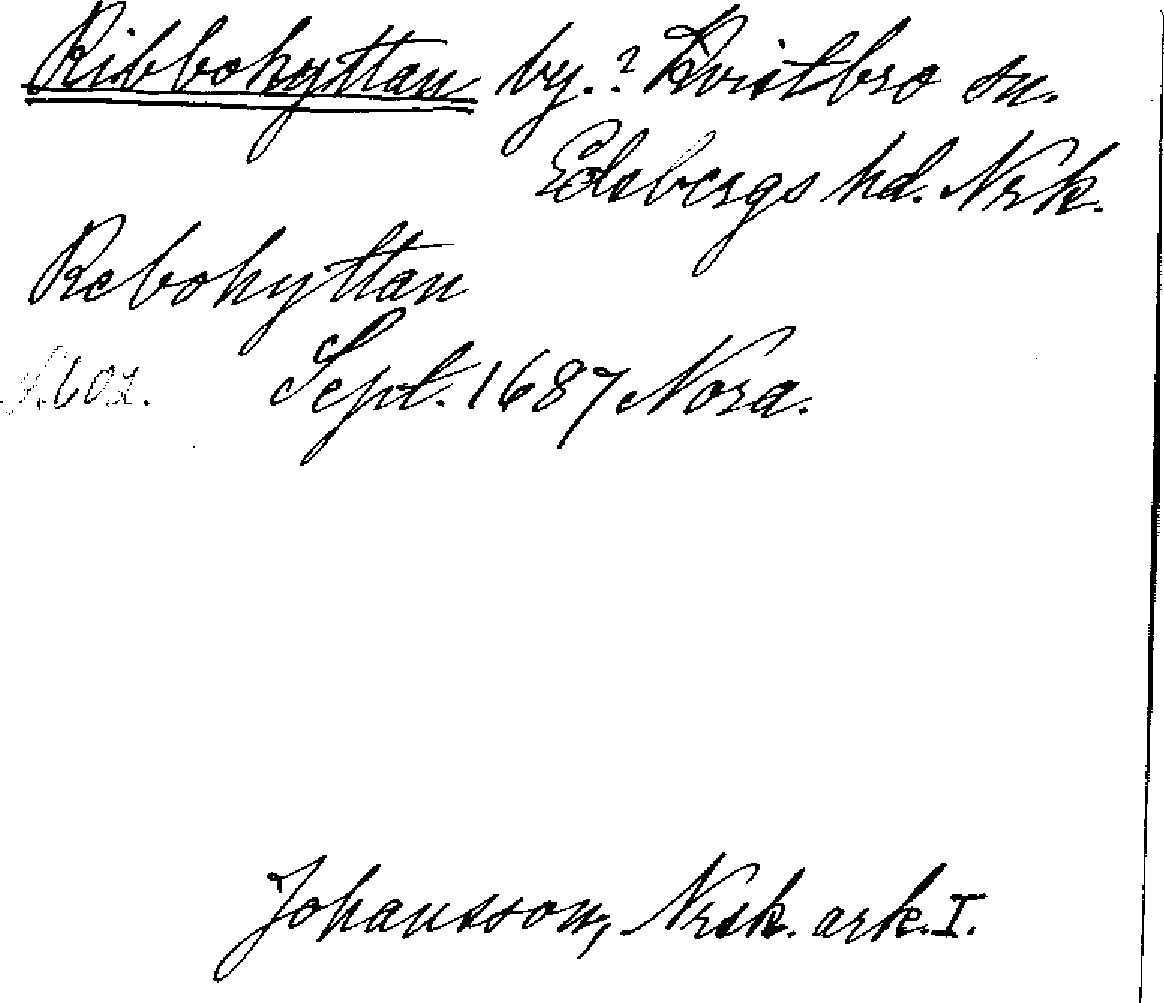 Ribbohyttan by.? Kvistbro sn.
Edsbergs hd. Nrk.
Rebohyttan
Sept. 1687 Nora.
Johansson, Nrsk. ark. I.